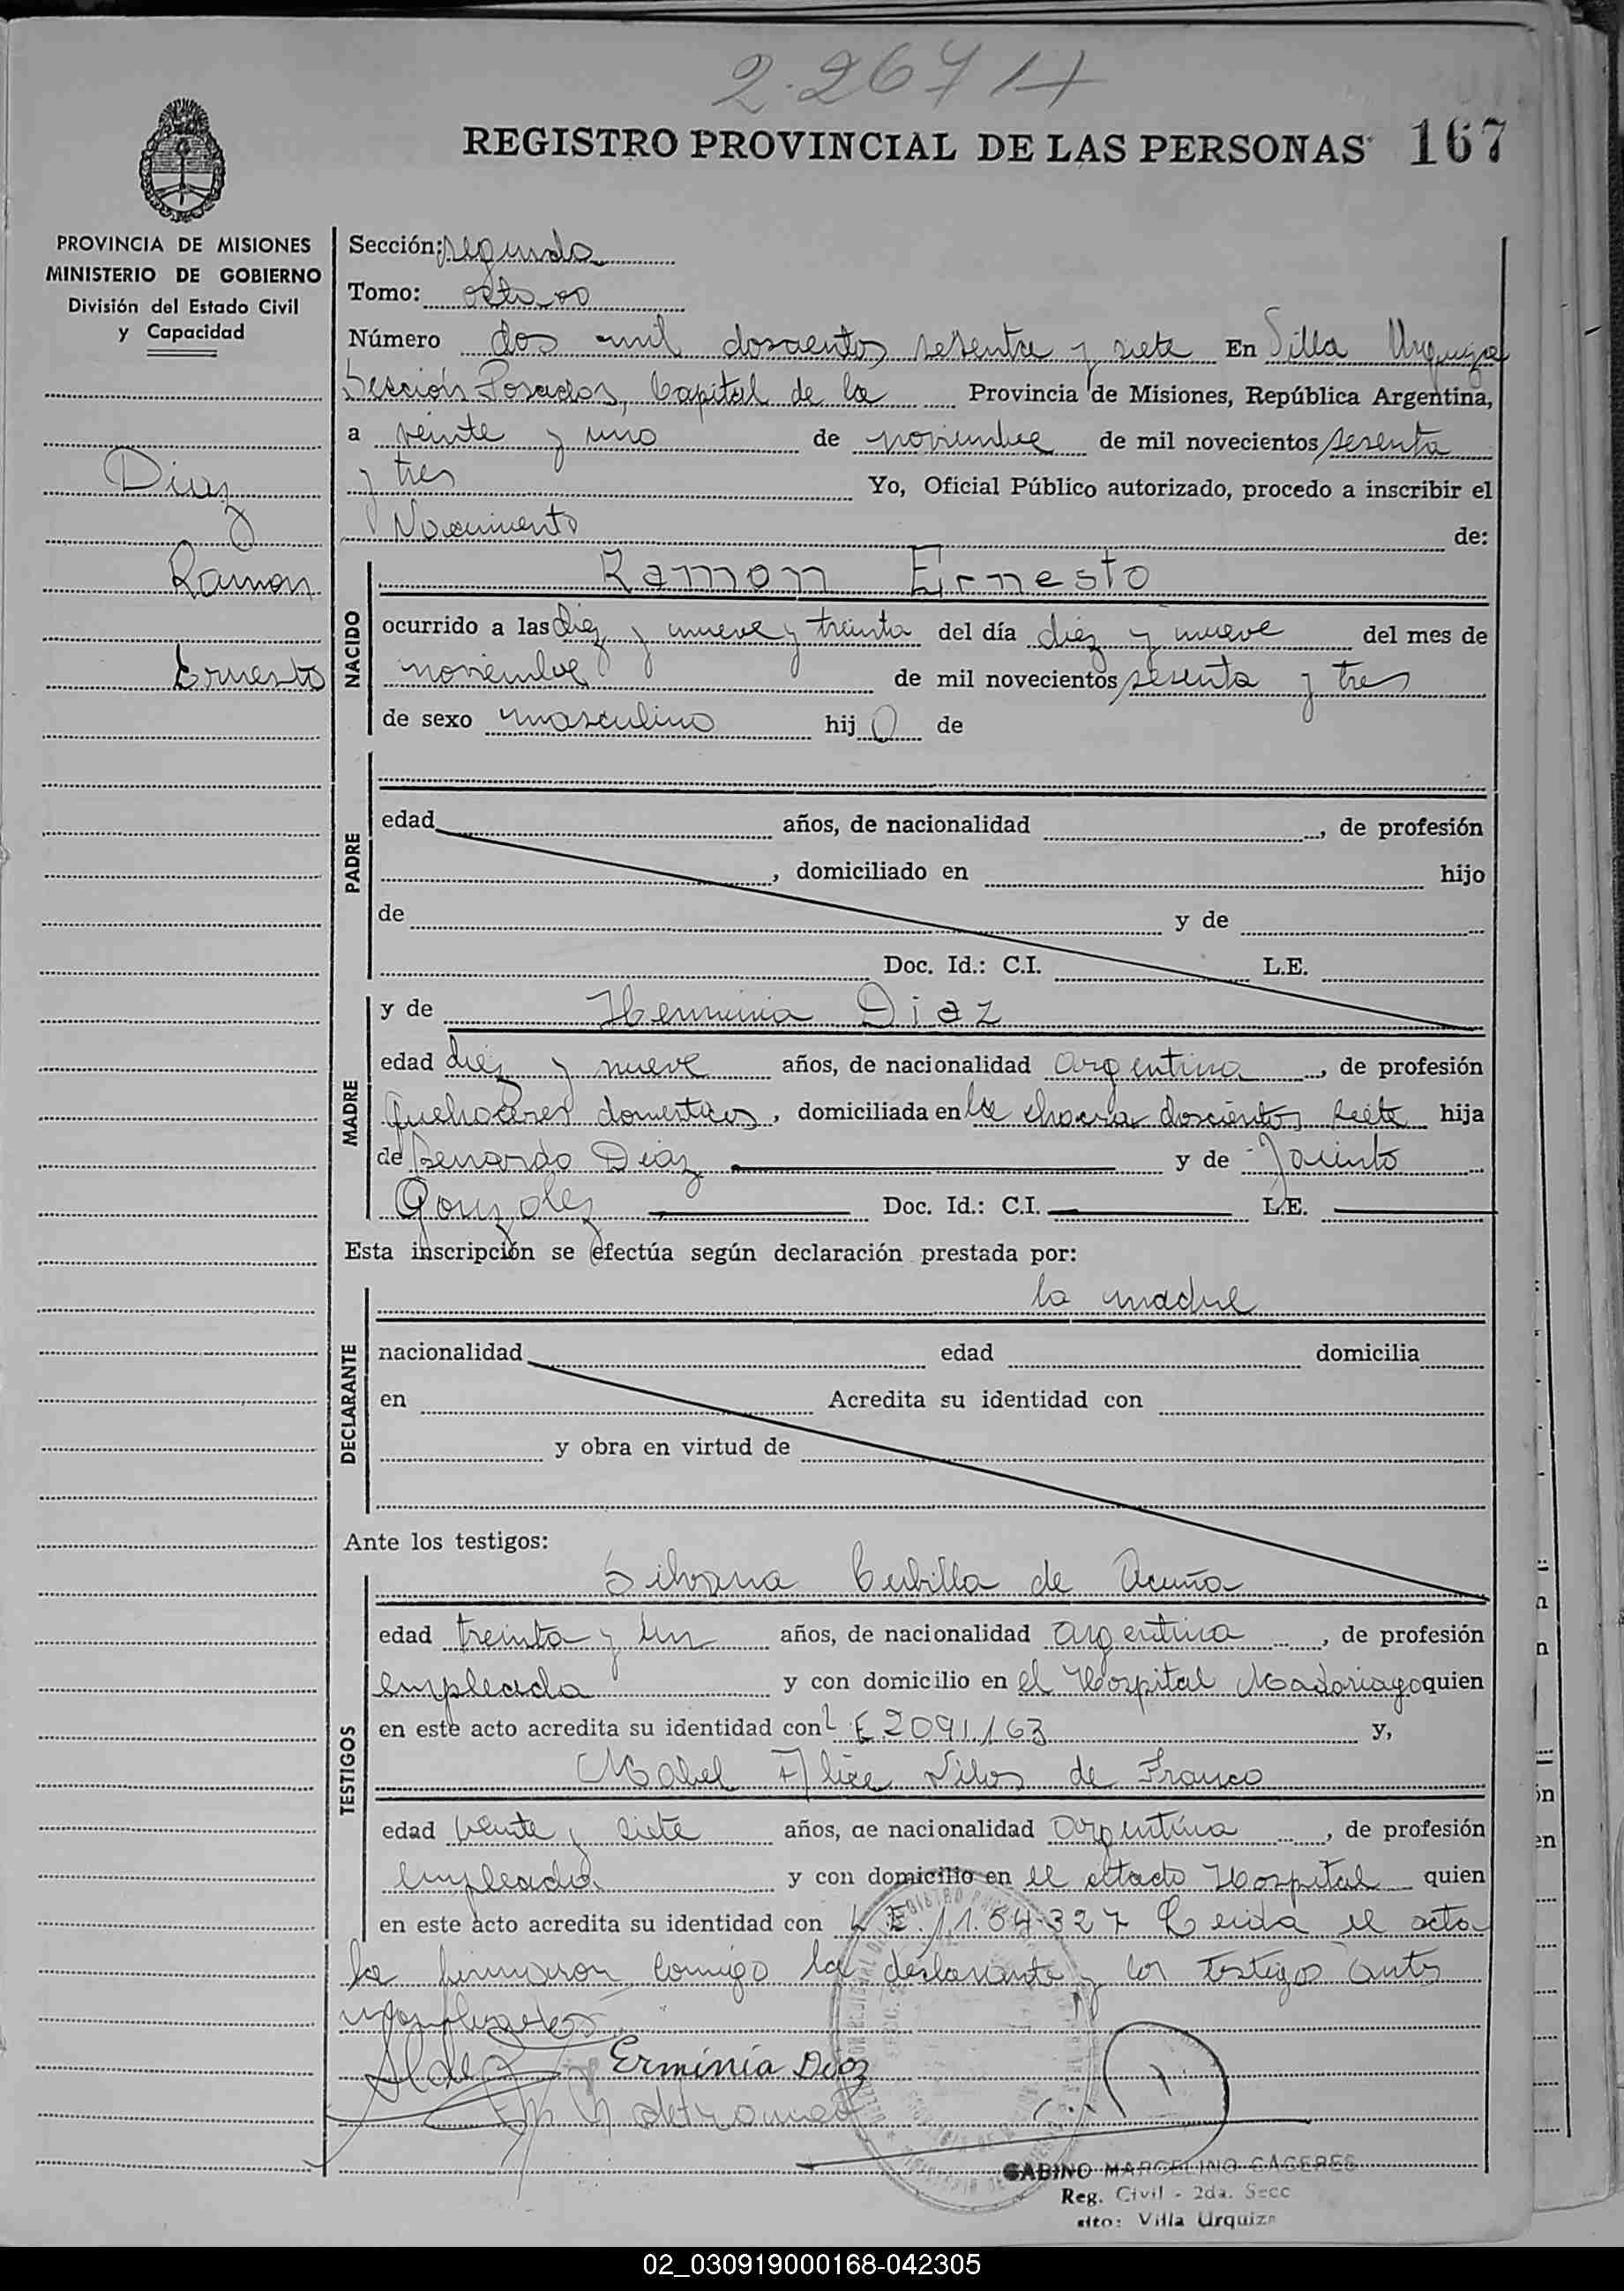 2.267 H
REGISTRO PROVINCIAL DE LAS PERSONAS 167
PROVINCIA DE MISIONES
MINISTERIO DE GOBIERNO
División del Estado Civil
y Capacidad
Diaz
Ramon
Ernesto
Sección: segunda
Tomo: octavo
Número dos mil doscientos sesenta y siete En Villa Urquiza
Sección Posadas, Capital de la Provincia de Misiones, República Argentina,
a veinte y uno de noviembre de mil novecientos sesenta
y tres Yo, Oficial Público autorizado, procedo a inscribir el
Nacimiento de:
NACIDO
Ramon Ernesto
ocurrido a las diez y nueve y treinta del día diez y nueve del mes de
noviembre de mil novecientos sesenta y tres
de sexo masculino hij o de
PADRE
edad años, de nacionalidad , de profesión
, domiciliado en hijo
de y de
Doc. Id.: C.I. L.E.
MADRE
y de Herminia Diaz
edad diez y nueve años, de nacionalidad argentina, de profesión
quehaceres domesticos, domiciliada en la chacra doscientos siete hija
de Benardo Diaz y de Jacinto
Gonzalez Doc. Id.: C.I. L.E.
Esta inscripción se efectúa según declaración prestada por:
DECLARANTE
la madre
nacionalidad edad domicilia
en Acredita su identidad con
y obra en virtud de
Ante los testigos:
TESTIGOS
Silvana Cubilla de Acuña
edad treinta y un años, de nacionalidad argentina, de profesión
empleada y con domicilio en el Hospital Madariaga quien
en este acto acredita su identidad con L E 2091.163 y,
Mabel Alice de Franco
edad veinte y siete años, de nacionalidad argentina, de profesión
empleada y con domicilio en el citado Hospital quien
en este acto acredita su identidad con L E. 1.154.327 Leida el acta
la firmaron conmigo la declarante y los testigos antes
Erminia Diaz
GABINO MARCELINO CACERES
Reg. Civil - 2da. Secc
sito: Villa Urquiza
02_030919000168-042305